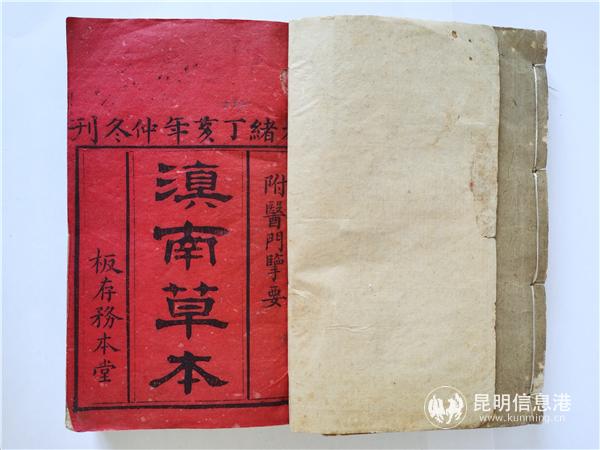 緒丁亥年仲冬刊
附醫門擥要
滇南草本
板存務本堂
昆明信息港
www.kunming.cn